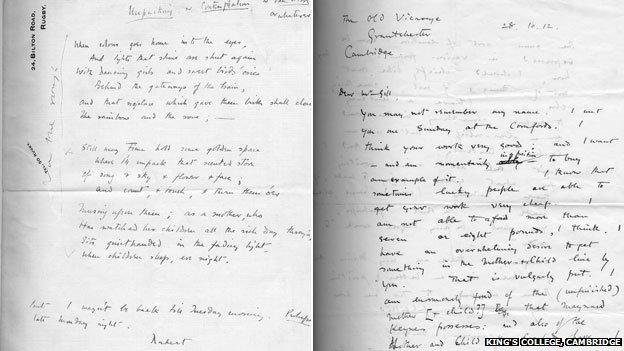 Unpacking or Contemplation or the Store
or whatever
24, BILTON ROAD,
RUGBY.
When colour goes home into the eyes,
And lights that shine are shut again
With dancing girls and sweet birds' cries
Behind the gateways of the brain;
And that no-place which gave them birth, shall close
The rainbow and the rose, —
Still may Time hold some golden space
Where I'll unpack that scented store
Of song & sky & flower & face,
And count, & touch, & turn them o'er
Musing upon them; as a mother, who
Has watched her children all the rich day through,
Sits quiethanded in the fading light
When children sleep, ere night.
But I mayn't be back till Tuesday morning. Perhaps
late Monday night.
Rupert
The Old Vicarage
Grantchester
Cambridge
28.10.12.
Dear Mr Gill,
You may not remember my name. I met
you one Sunday at the Cornfords. I
think your work very good: and I want
— and am momentarily in a position to buy
an example of it. I know that
sometimes lucky people are able to
get your work very cheap. I
am not able to afford more than
seven or eight pounds, I think. I
have an overwhelming desire to get
something in the Mother & Child line by
you. That is vulgarly put. I
am enormously fond of the (unfinished)
mother [& child?] that Maynard
Keynes possesses: and also of the
Mother and Child
KING'S COLLEGE, CAMBRIDGE